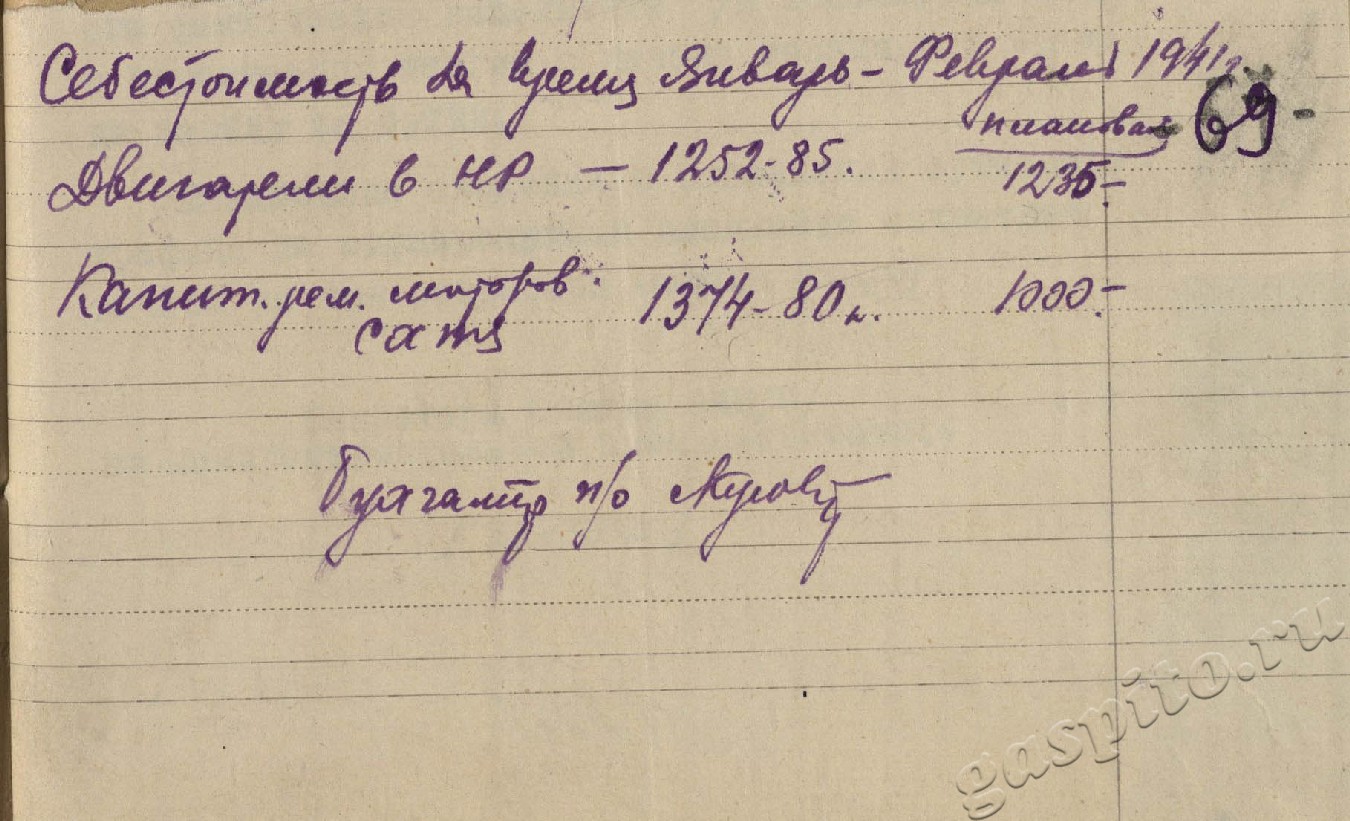 Себестоимость за время Январь – Февраль 1941 г.
плановая
- 69 -
Двигатели в НР — 1252-85. 1235-
Капит. рем. моторов 1374-80 к. 1000-
Бухгалтер п/о
gaspito.ru